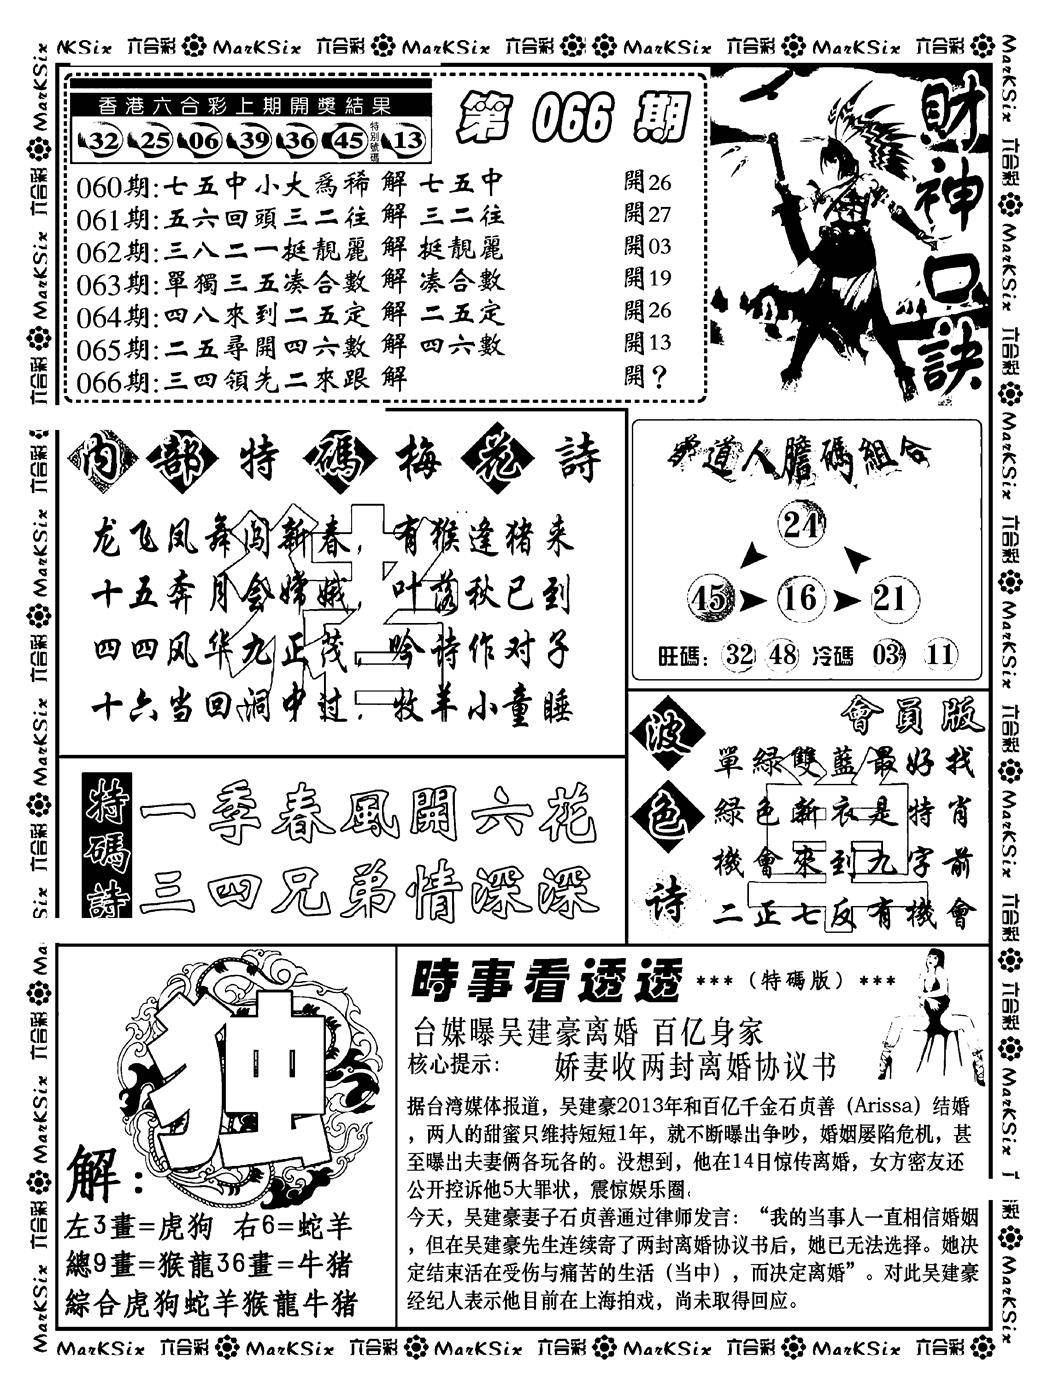 MarKSix 六合彩 MarKSix 六合彩 MarKSix 六合彩 MarKSix 六合彩 MarKSix 六合彩
香港六合彩上期開獎結果
32 25 06 39 36 45 特別號碼 13
第 066 期
060期:七五中小大爲稀 解 七五中 開26
061期:五六回頭三二往 解 三二往 開27
062期:三八二一挺靚麗 解 挺靚麗 開03
063期:單獨三五凑合數 解 凑合數 開19
064期:四八來到二五定 解 二五定 開26
065期:二五尋開四六數 解 四六數 開13
066期:三四領先二來跟 解 開?
財神口訣
内部特碼梅花詩
龙飞凤舞闯新春，有猴逢猪来
十五奔月会嫦娥，叶落秋已到
四四风华九正茂，吟诗作对子
十六当回洞中过，牧羊小童睡
道人膽碼組合
24
45 16 21
旺碼: 32 48 冷碼 03 11
特碼詩
一季春風開六花
三四兄弟情深深
波色诗
會員版
單緑雙藍最好找
緑色新衣是特肖
機會來到九字前
二正七反有機會
独
解:
左3畫=虎狗 右6=蛇羊
總9畫=猴龍36畫=牛猪
綜合虎狗蛇羊猴龍牛猪
時事看透透 ***（特碼版）***
台媒曝吴建豪离婚 百亿身家
核心提示: 娇妻收两封离婚协议书
据台湾媒体报道，吴建豪2013年和百亿千金石贞善（Arissa）结婚
，两人的甜蜜只维持短短1年，就不断曝出争吵，婚姻屡陷危机，甚
至曝出夫妻俩各玩各的。没想到，他在14日惊传离婚，女方密友还
公开控诉他5大罪状，震惊娱乐圈。
今天，吴建豪妻子石贞善通过律师发言：“我的当事人一直相信婚姻
，但在吴建豪先生连续寄了两封离婚协议书后，她已无法选择。她决
定结束活在受伤与痛苦的生活（当中），而决定离婚”。对此吴建豪
经纪人表示他目前在上海拍戏，尚未取得回应。
MarKSix 六合彩 MarKSix 六合彩 MarKSix 六合彩 MarKSix 六合彩 MarKSix 六合彩